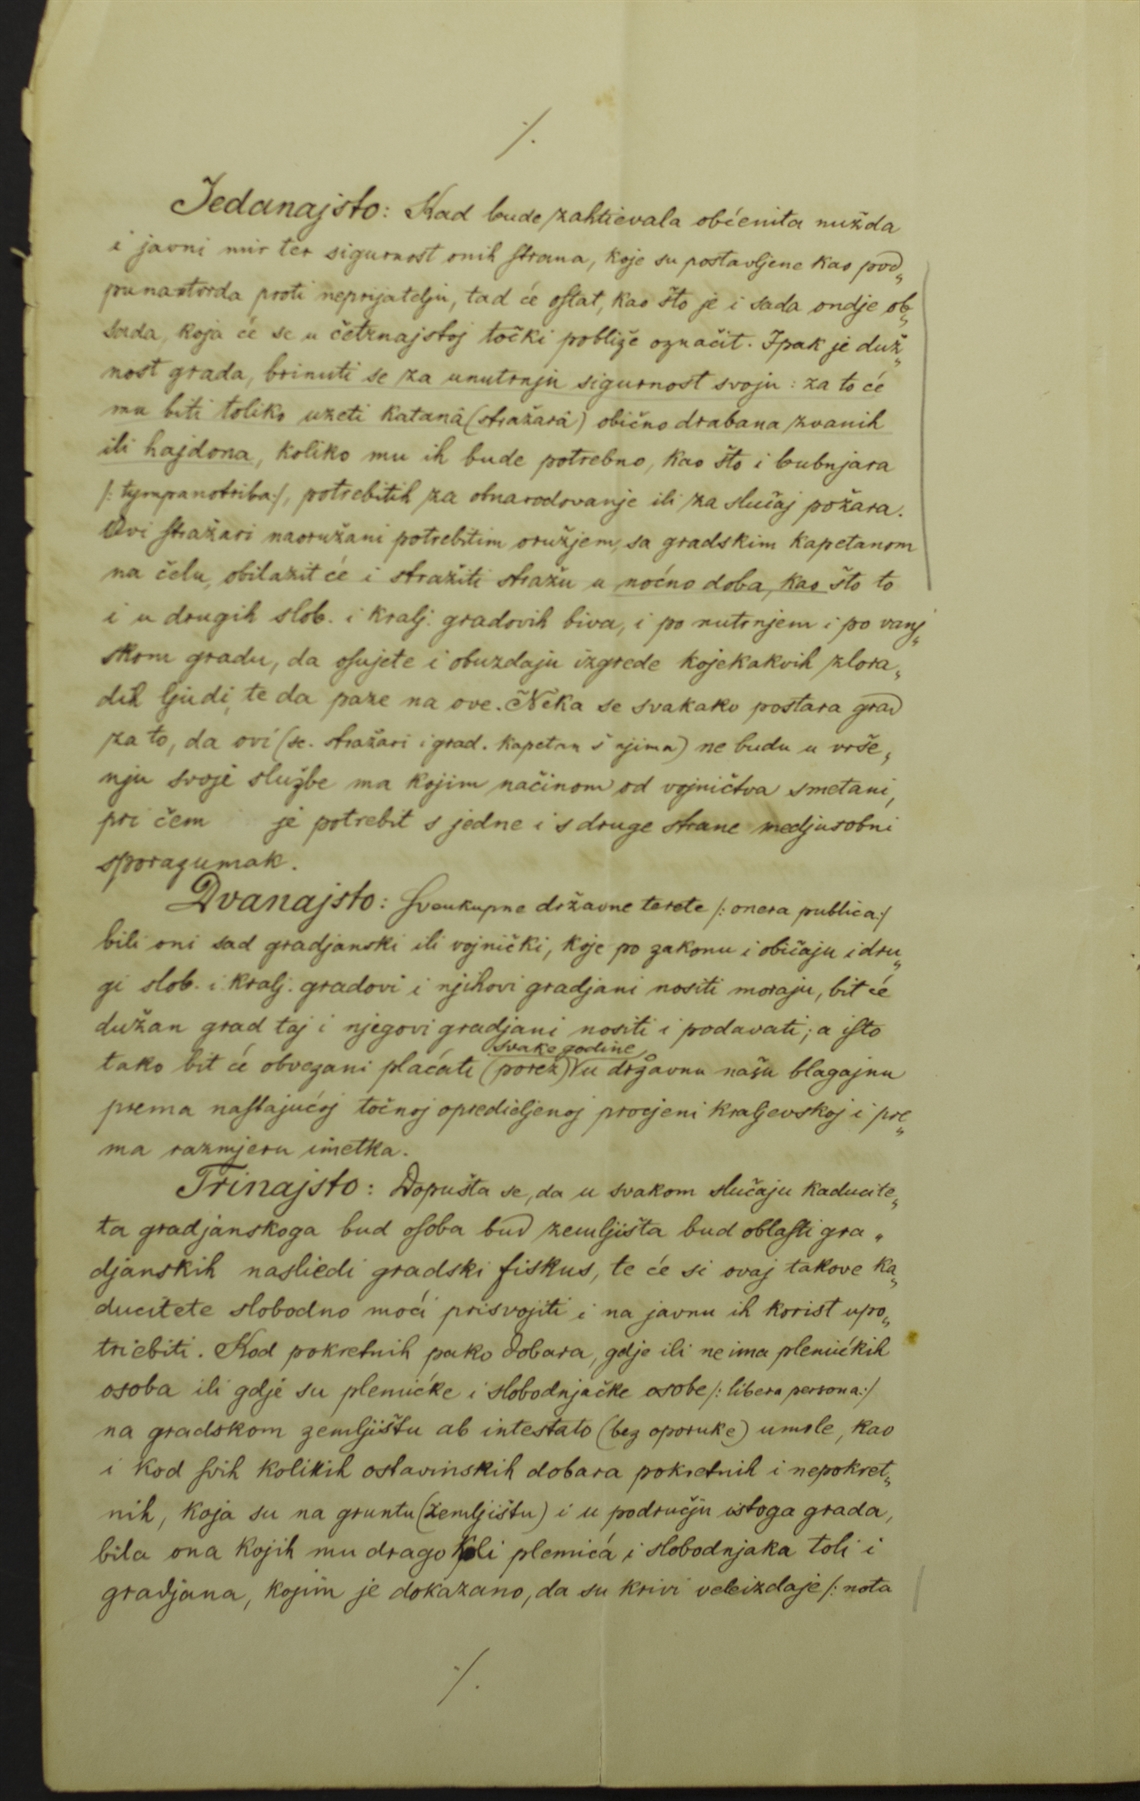 ./.
Jedanajsto: Kad bude zahtievala obćenita nužda
i javni mir ter sigurnost onih strana, koje su postavljene kao pod„
puna tvrda proti neprijatelju, tad će ostat, kao što je i sada ondje ob„
sada, koja će se u četrnajstoj točki pobliže označit. Ipak je duž„
nost grada, brinuti se za unutrnju sigurnost svoju: za to će
mu biti toliko uzeti katanâ (stražarâ) obično drabana zvanih
ili hajdona, koliko mu ih bude potrebno, kao što i bubnjara
/: tympanotriba:/, potrebitih za obnarodovanje ili za slučaj požara.
Ovi stražari naoružani potrebitim oružjem, sa gradskim kapetanom
na čelu, obilazit će i stražiti stražu u noćno doba, kao što to
i u drugih slob. i kralj. gradovih biva, i po nutrnjem i po vanj„
skom gradu, da osujete i obuzdaju izgrede kojekakvih zlora„
dih ljudi, te da paze na ove. Neka se svakako postara grad
za to, da ovi (sc. stražari i grad. kapetan š njima) ne budu u vrše„
nju svoje službe ma kojim načinom od vojničtva smetani,
pri čem je potrebit s jedne i s druge strane medjusobni
sporazumak.
Dvanajsto: Sveukupne državne terete /: onera publica:/
bili oni sad gradjanski ili vojnički, koje po zakonu i običaju i dru„
gi slob. i kralj. gradovi i njihovi gradjani nositi moraju, bit će
dužan grad taj i njegovi gradjani nositi i podavati; a isto
svake godine
tako bit će obvezani plaćati (porez) u državnu našu blagajnu
prema nastajućoj točnoj opredieljenoj procjeni kraljevskoj i pre„
ma razmjeru imetka.
Trinajsto: Dopušta se, da u svakom slučaju kaducite„
ta gradjanskoga bud osoba bud zemljišta bud oblasti gra„
djanskih nasliedi gradski fiskus, te će si ovaj takove ka„
ducitete slobodno moći prisvojiti i na javnu ih korist upo„
triebiti. Kod pokretnih pako dobara, gdje ili neima plemićkih
osoba ili gdje su plemićke i slobodnjačke osobe /: libera persona:/
na gradskom zemljištu ab intestato (bez oporuke) umrle, kao
i kod svih kolikih ostavinskih dobara pokretnih i nepokret„
nih, koja su na gruntu (zemljištu) i u području istoga grada,
bila ona kojih mu drago koli plemića i slobodnjaka toli i
gradjana, kojim je dokazano, da su krivi veleizdaje /: nota
./.